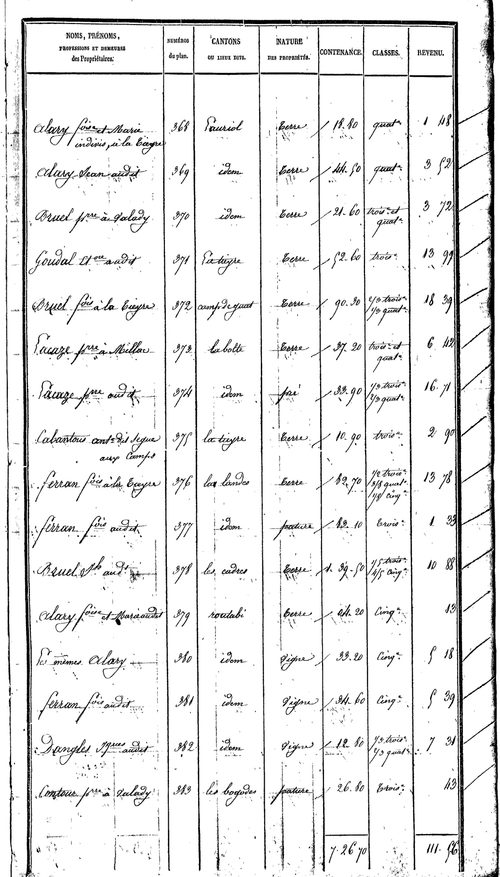 NOMS, PRÉNOMS, PROFESSIONS ET DEMEURES des Propriétaires. | NUMÉROS du plan. | CANTONS OU LIEUX DITS. | NATURE DES PROPRIÉTÉS. | CONTENANCE. | CLASSES. | REVENU.
Alary foise et Marie indivis, à la Cayre | 368 | Lauriol | Terre | 18.80 | quat. | 1 48
Alary Jean audit | 369 | idem | Terre | 44.50 | quat. | 3 52
Bruel prre à Salady | 370 | idem | Terre | 21.60 | trois. et quat. | 3 72
Goudal Etne audit | 371 | La teyre | Terre | 52.60 | trois. | 13 99
Bruel fois à la Cayre | 372 | Terre | 90.30 | 1/3 trois. 1/3 quat. | 18 39
Lacaze prre à Millac | 373 | la bolte | Terre | 37.20 | trois. et quat. | 6 42
Lacaze prre audit | 374 | idem | pré | 33.90 | 1/3 trois. 1/3 quat. | 16 71
Cabantous ant. dit Segue aux Camps | 375 | la teyre | Terre | 10.90 | trois. | 2 90
ferran fois à la Cayre | 376 | las landes | Terre | 89.70 | 1/2 trois. 3/8 quat. 1/8 cinq. | 13 78
ferran fois audit | 377 | idem | pature | 83.10 | trois. | 1 33
Bruel audt | 378 | les cadres | Terre | 1.39.50 | 1/5 trois. 4/5 cinq. | 10 88
Alary foise et Marie audit | 379 | routabi | Terre | 04.20 | Cinq. | 13
Les mêmes Alary | 380 | idem | Vigne | 33.20 | Cinq. | 5 18
ferran fois audit | 381 | idem | Vigne | 34.60 | Cinq. | 5 39
Dangles Jques audit | 382 | idem | Vigne | 12.80 | 1/3 trois. 1/3 quat. | 7 31
Contour prre à Salady | 383 | les boyodes | pature | 26.80 | trois. | 43
7.26.70 | 111.56